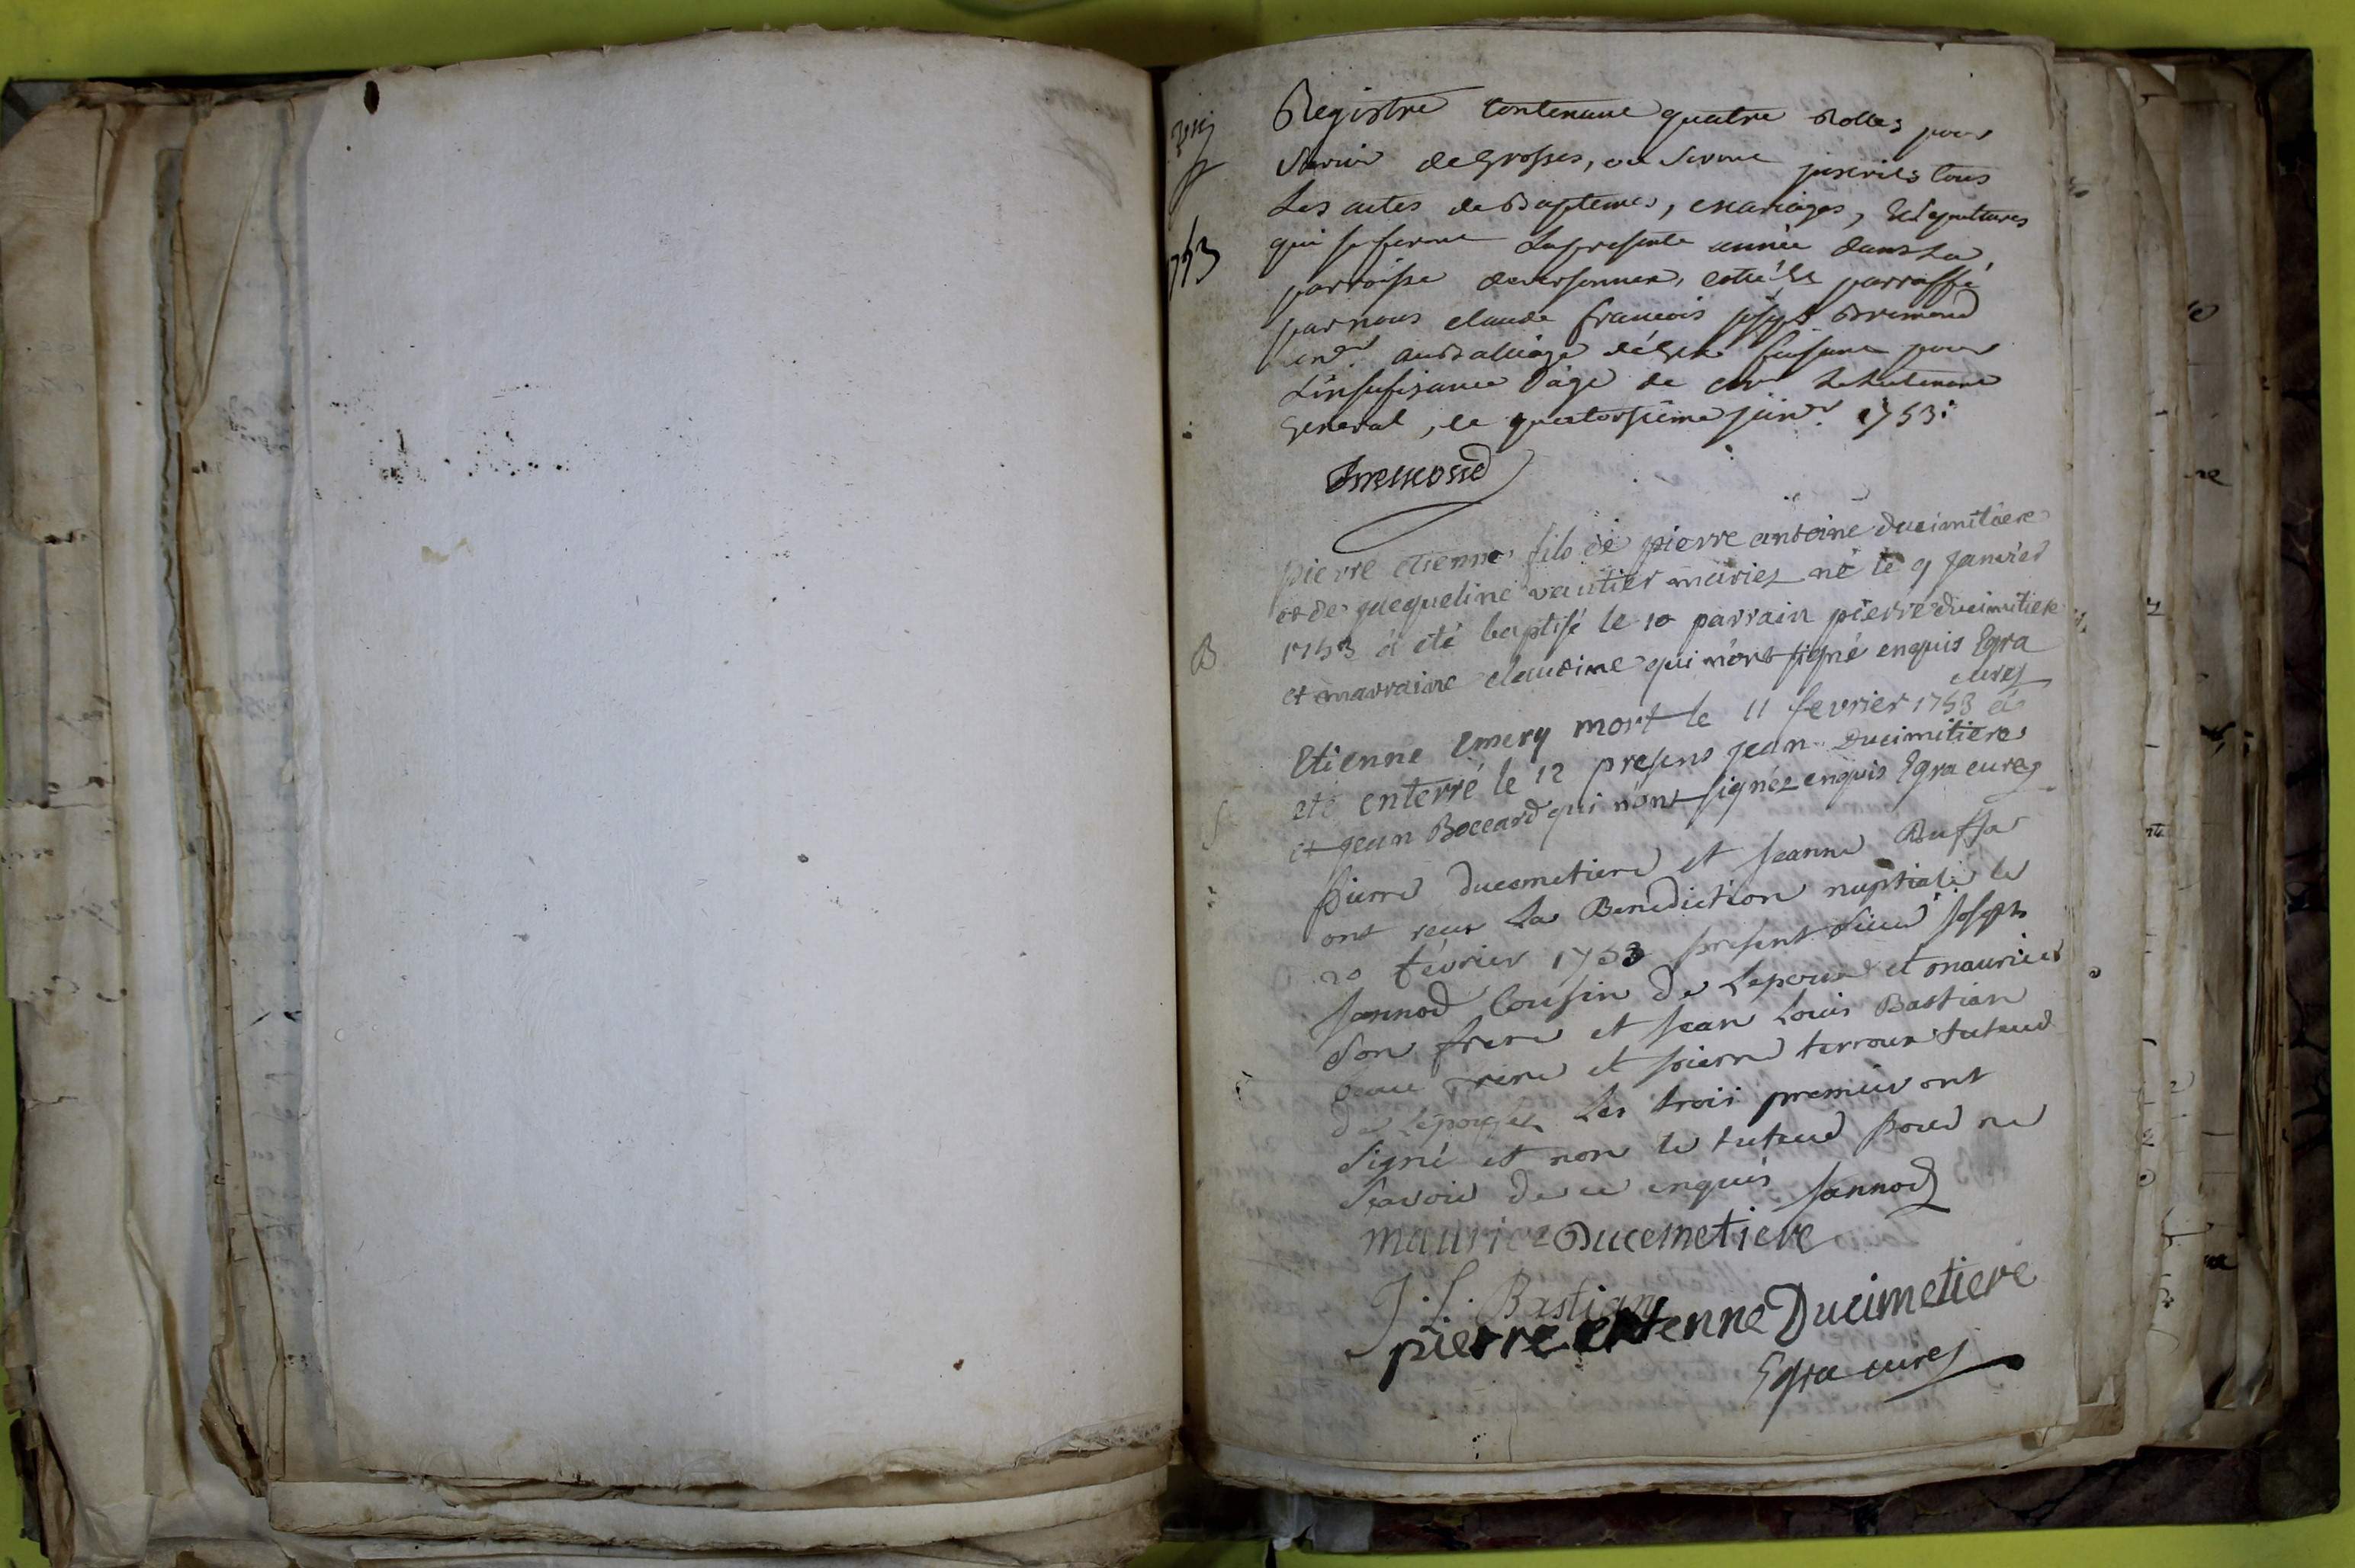 1753
Registre contenant quatre Rolles pour
Servir de Grosses, ou Seront inscrits tous
Les actes de Baptemes, mariages, Sepultures
qui se feront La presente année dans La
parroisse de versonnex, cotté & parraffé
par nous claude francois joseph
au Balliage de Gex faisant pour
L'insufisance D'age de Le Lieutenant
General, le quatorsieme janr 1753
pierre etienne fils de pierre antoine ducimitiere
et de jacqueline vautier mariez né le 9 janvier
1753 a été baptisé le 10 parrain pierre ducimitiere
B
et marraine claudine qui n'ont signé enquis Egra
curez
Etienne Emery mort le 11 fevrier 1753 a
eté enterré le 12 presens jean Ducimitiere
S
et jean Boccard qui n'ont signéz enquis Egra curez
pierre ducemetiere et jeanne Buffa
ont reçu La Benediction nuptiale le
20 février 1753 present Sieur joseph
jannod Cousin de L'epoux et maurice
Son frere et jean Louis Bastian
beau frere et pierre terroux tuteur
de L'epouse, Les trois premier ont
Signé et non le tuteur pour ne
Sçavoir de ce enquis jannod
maurice Ducemetiere
J. L. Bastian
pierre etienne Ducimetiere
Egra curez